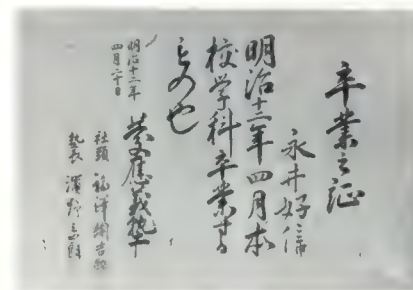 卒業之証
永井好信
明治十二年四月本
校学科卒業する
もの也
明治十二年
四月二十日
慶應義塾
社頭 福澤諭吉
塾長 濱野定四郎